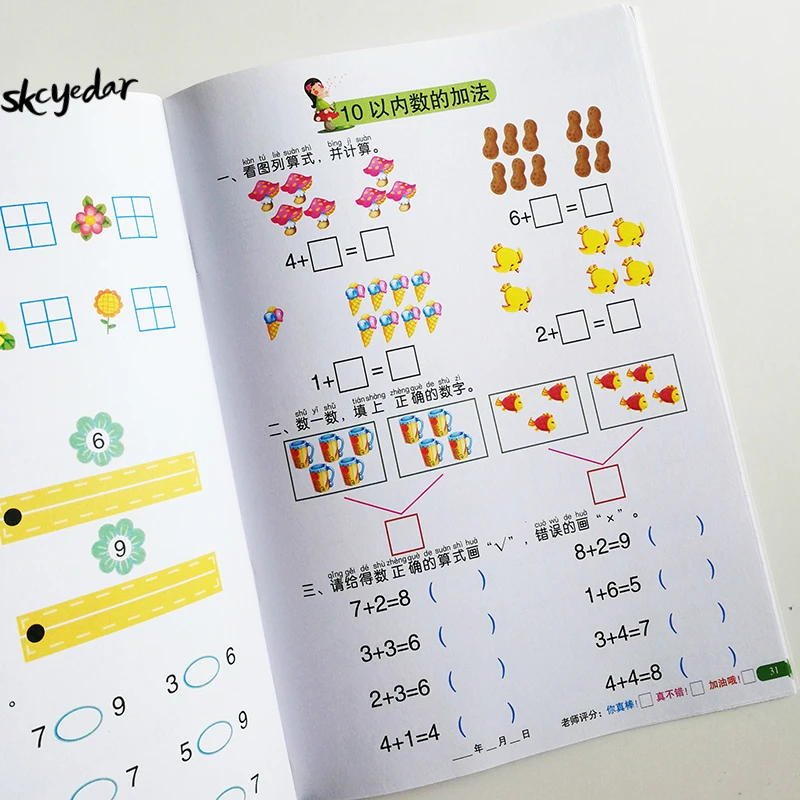 skcyedar
6
9
7 9
3 6
5 9
7
7
。
10以内数的加法
kàn tú liè suàn shì bìng jì suàn
一、看图列算式，并计算。
4+□=□
6+□=□
1+□=□
2+□=□
shǔ yì shǔ tián shàng zhèng què de shù zì
二、数一数，填上正确的数字。
qǐng gěi dé shù zhèng què de suàn shì huà cuò wù de huà
三、请给得数正确的算式画“√”，错误的画“×”。
7+2=8 ( ) 8+2=9 ( )
3+3=6 ( ) 1+6=5 ( )
2+3=6 ( ) 3+4=7 ( )
4+1=4 ( ) 4+4=8 ( )
___年__月__日
老师评分：你真棒！□ 真不错！□ 加油哦！□
31